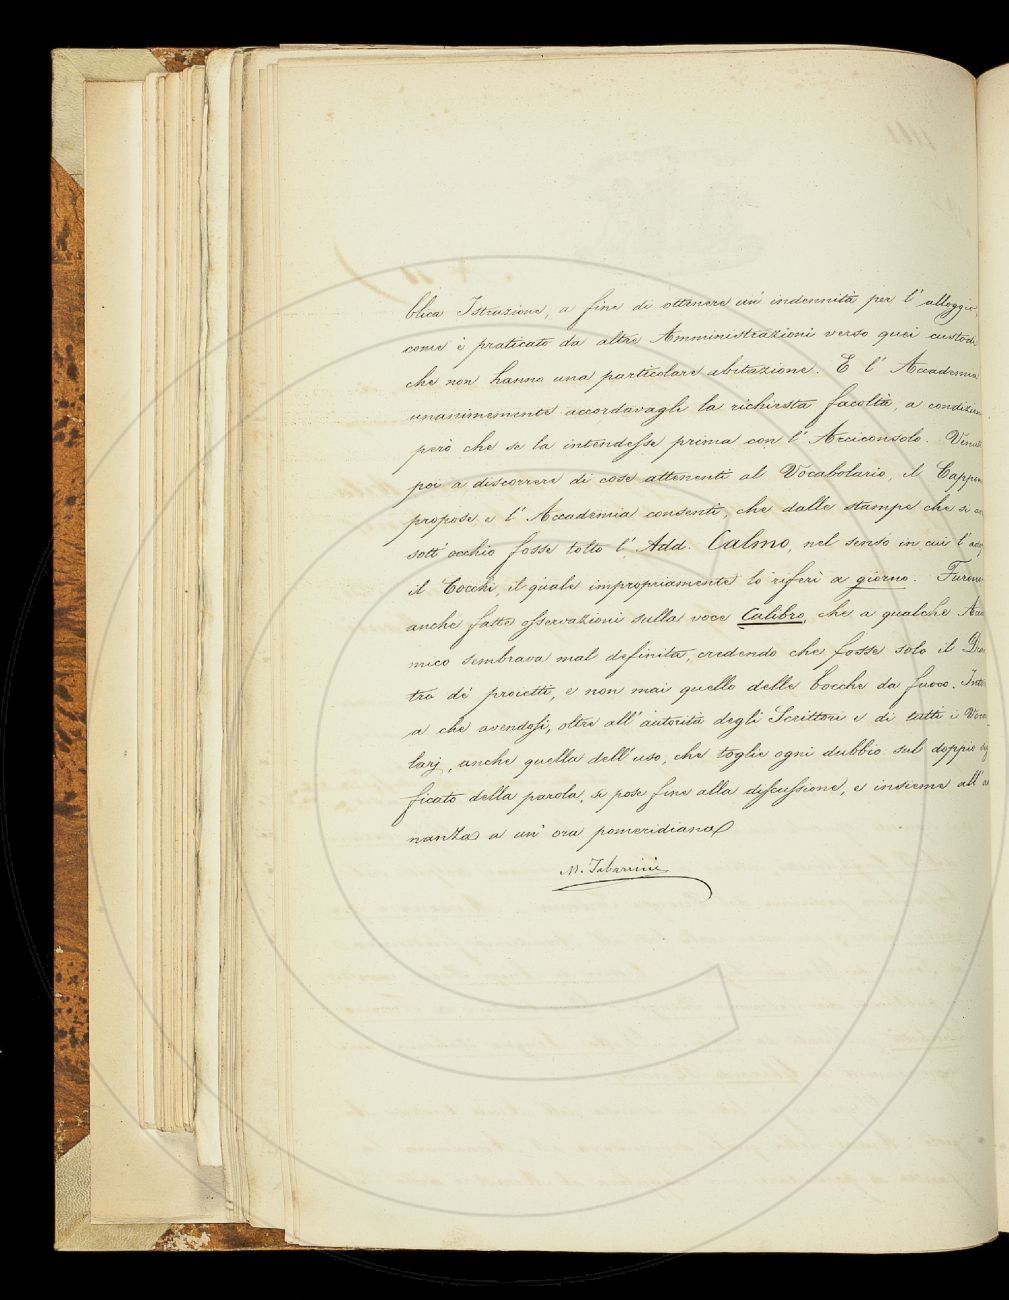 blica Istruzione, a fine di ottenere un' indennità per l' alloggio
come è praticato da altre Amministrazioni verso quei custodi
che non hanno una particolare abitazione. E l' Accademia
unanimemente accordavagli la richiesta facoltà, a condizion
però che se la intendesse prima con l' Arciconsolo. Venut
poi a discorrere di cose attenenti al Vocabolario, il Cappon
propose, e l' Accademia consentì, che dalle stampe che si
sott' occhio fosse tolto l' Add. Calmo, nel senso in cui l'
il Cocchi, il quale impropriamente lo riferì a giorno. Furono
anche fatte osservazioni sulla voce Calibro, che a qualche Acca
mico sembrava mal definita, credendo che fosse solo il
tro de' proietti, e non mai quello delle bocche da fuoco.
a che avendosi, oltre all' autorità degli Scrittori e di tutti i Voca
larj, anche quella dell' uso, che toglie ogni dubbio sul doppio
ficato della parola, si pose fine alla discussione, e insieme all'
nanza a un' ora pomeridiana
M. Tabarrini